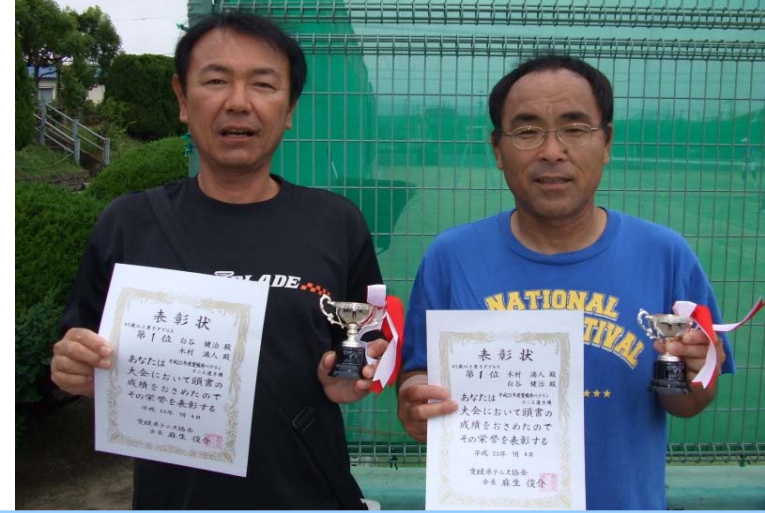 表彰状
45歳以上男子ダブルス
第1位 白谷 健治 殿
木村 満人 殿
あなたは平成22年度愛媛県ベテラン
テニス選手権
大会において頭書の
成績をおさめたので
その栄誉を表彰する
平成 22年 9月 4日
愛媛県テニス協会
会長 麻生 俊介
表彰状
45歳以上男子ダブルス
第1位 木村 満人 殿
白谷 健治 殿
あなたは平成22年度愛媛県ベテラン
テニス選手権
大会において頭書の
成績をおさめたので
その栄誉を表彰する
平成 22年 9月 4日
愛媛県テニス協会
会長 麻生 俊介
NATIONAL